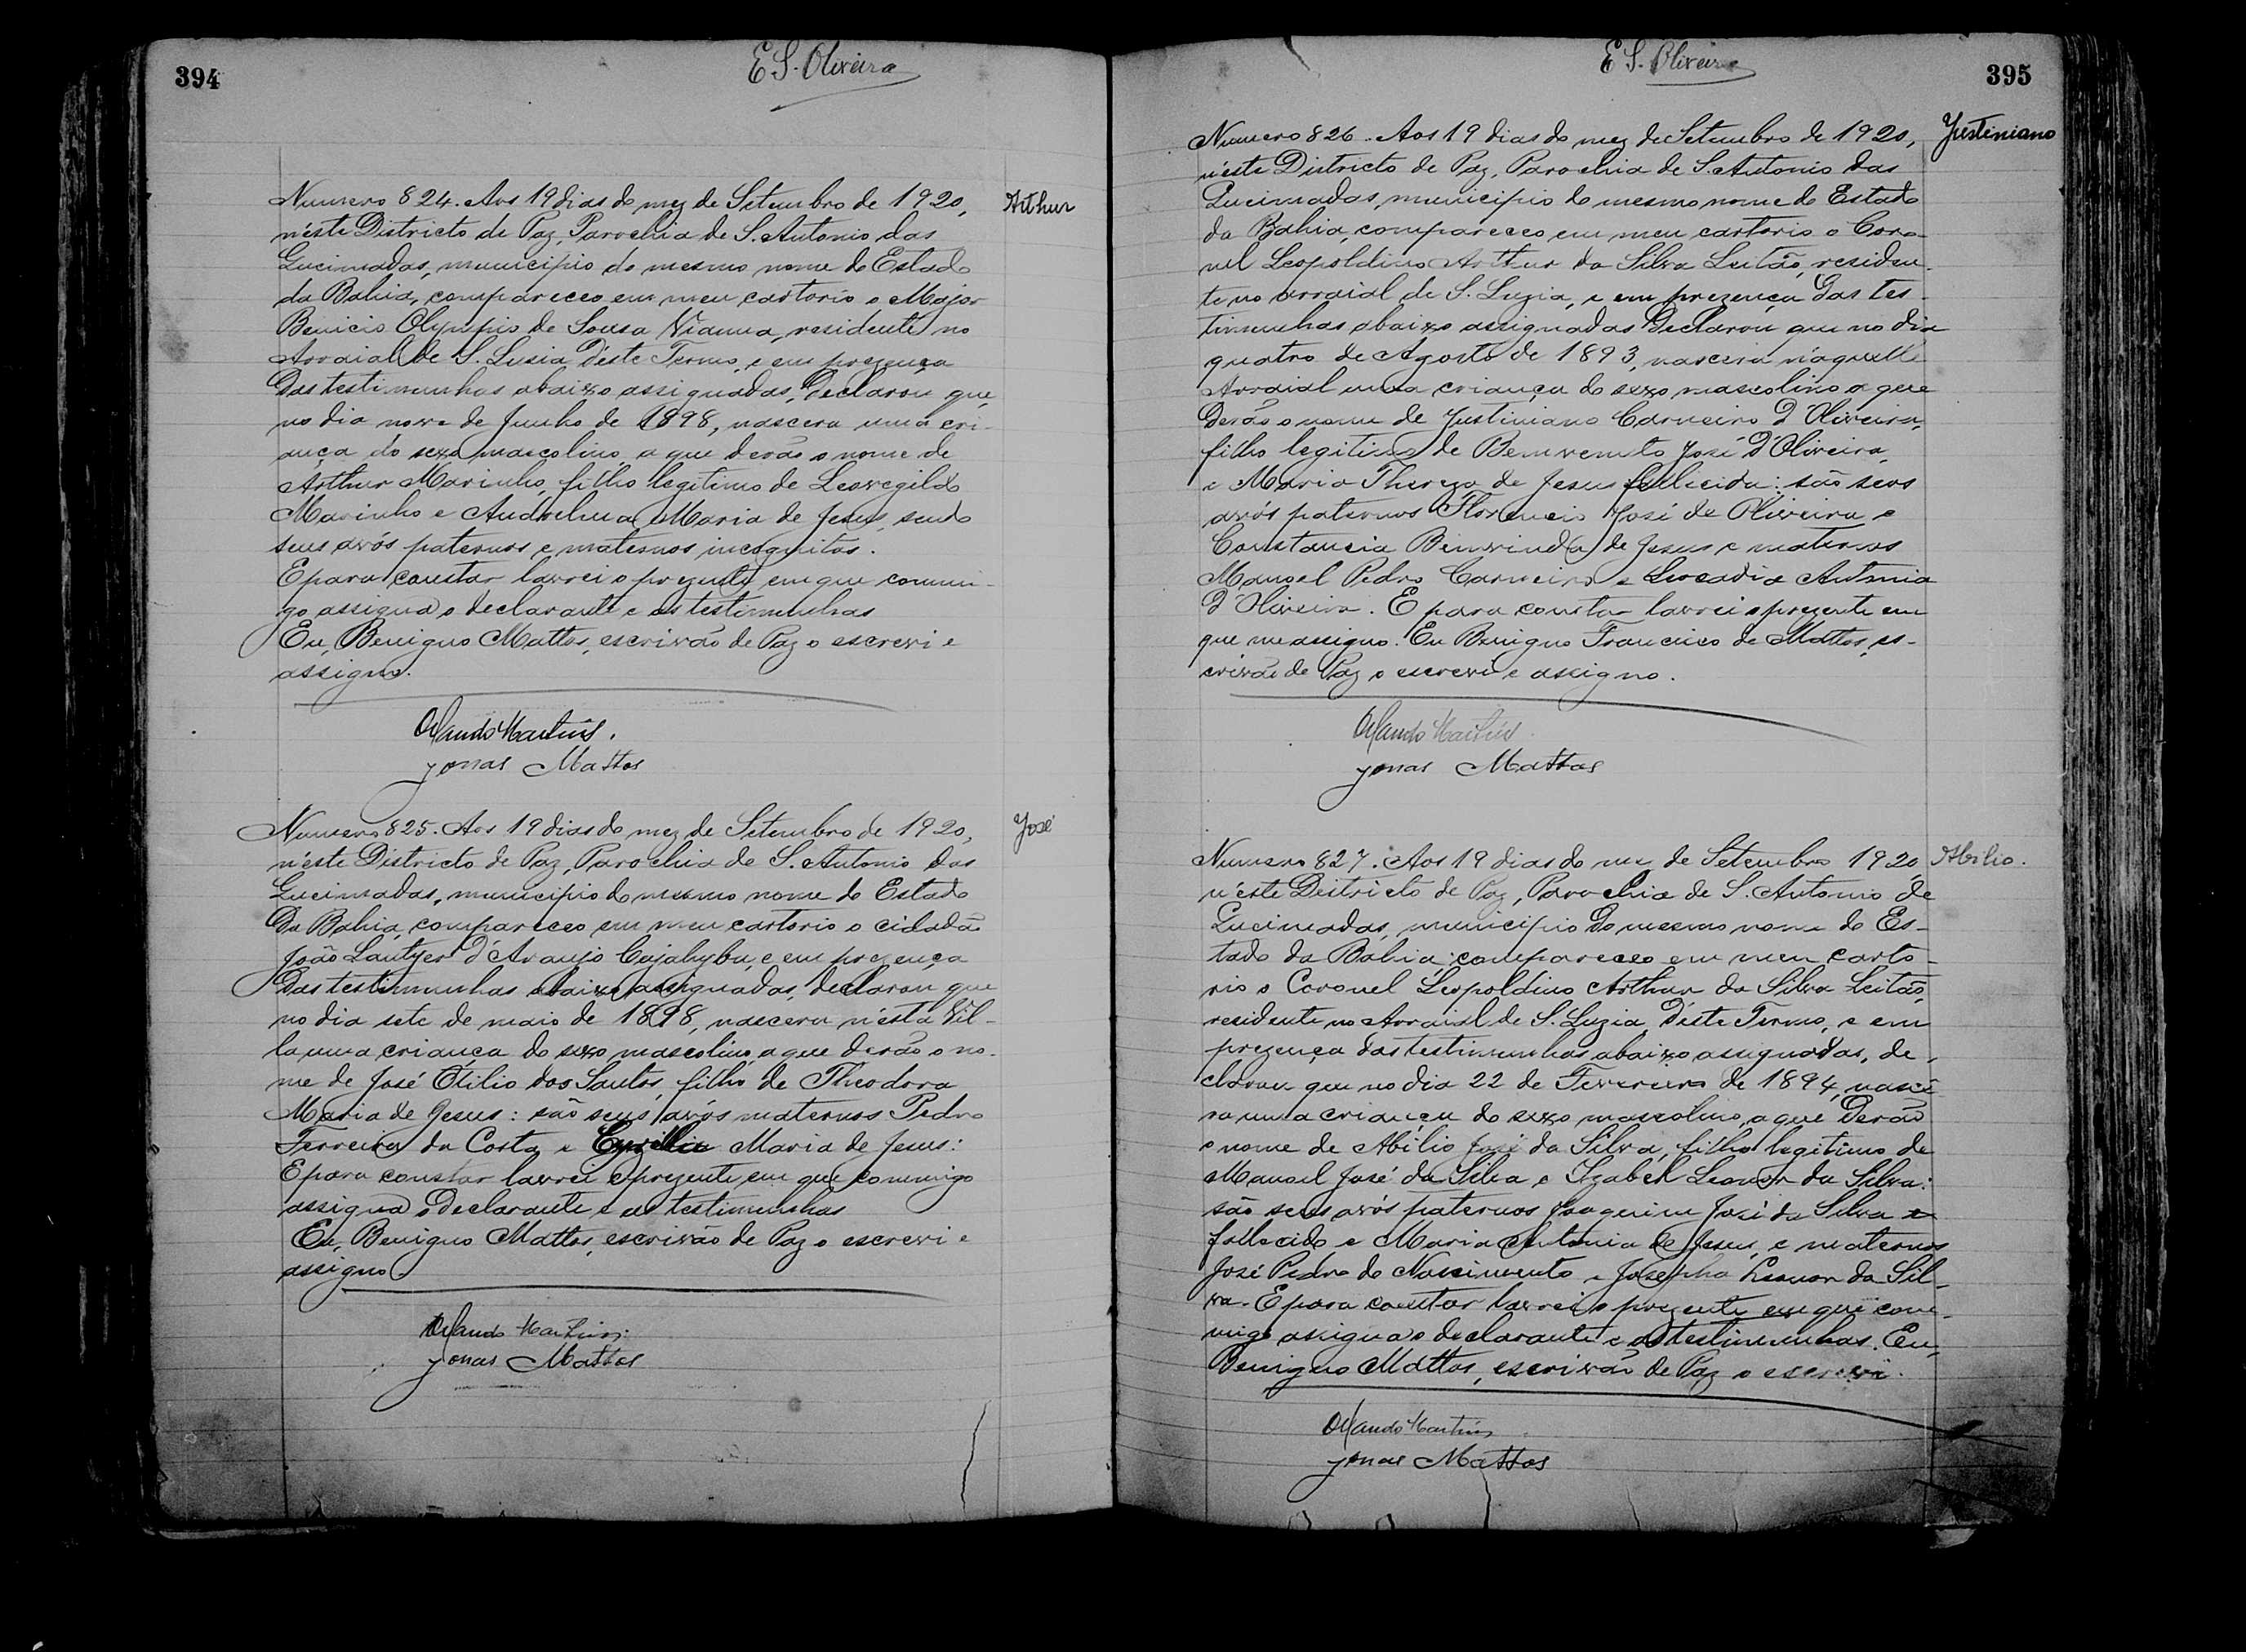 394
E S. Oliveira
Numero 824. Aos 19 dias do mez de Setembro de 1920,
Arthur
n'éste Districto de Paz, Parochia de S. Antonio das
Queimadas, municipio do mesmo nome do Estado
da Bahia, compareceo em meu cartorio o Major
Benicio Olympio de Sousa Vianna, residente no
Arraial de S. Lusia d'éste Termo, e em prezença
das testimunhas abaixo assignadas, declarou que,
no dia nove de Junho de 1898, nascera uma cri-
ança do sexo mascolino a que derão o nome de
Arthur Marinho, filho legitimo de Leovegildo
Marinho e Maria de Jesus, sendo
seus avós paternos e maternos incognitos.
E para constar lavrei o prezente em que commi-
go assigna o declarante e as testimunhas
Eu, Benigno Mattos, escrivão de Paz o escrevi e
assigno.
Orlando Martins.
Jonas Mattos
Numero 825. Aos 19 dias do mez de Setembro de 1920,
José
n'éste Districto de Paz, Parochia de S. Antonio das
Queimadas, municipio do mesmo nome do Estado
da Bahia, compareceo em meu cartorio o cidadão
João Lantyer d'Araujo Cajahyba, e em prezença
das testimunhas abaixo assignadas, declarou que
no dia sete de maio de 1898, nascera n'ésta Vil-
la uma criança do sexo mascolino, a que derão o no-
me de José Otilio dos Santos, filho de Theodora
Maria de Jesus: são seus avós maternos Pedro
Ferreira da Costa e Maria de Jesus:
E para constar lavrei o prezente em que commigo
assigna o declarante e as testimunhas
Eu, Benigno Mattos, escrivão de Paz o escrevi e
assigno.
Orlando Martins.
Jonas Mattos
E S. Oliveira
395
Numero 826. Aos 19 dias do mez de Setembro de 1920,
Justiniano
n'éste Districto de Paz, Parochia de S. Antonio das
Queimadas, municipio do mesmo nome do Estado
da Bahia, compareceo em meu cartorio o Coro-
nel Leopoldino Arthur da Silva Leitão, residen-
te no arraial de S. Luzia, e em prezença das tes-
timunhas abaixo assignadas declarou que no dia
quatro de Agosto de 1893, nascera n'aquelle
Arraial uma criança do sexo mascolino a que
derão o nome de Justiniano Carneiro d'Oliveira,
filho legitimo de Bemvenuto José d'Oliveira,
e Maria Thereza de Jesus fallecida: são seos
avós paternos Florencio José de Oliveira e
Constancia Bemvinda de Jesus e maternos
Manoel Pedro Carneiro e Leocadia Antonia
d'Oliveira. E para constar lavrei o prezente em
que me assigno. Eu Benigno Francisco de Mattos, es-
crivão de Paz o escrevi e assigno.
Orlando Martins.
Jonas Mattos
Numero 827. Aos 19 dias do mez de Setembro 1920,
Abilio.
n'éste Destricto de Paz, Parochia de S. Antonio de
Queimadas, municipio do mesmo nome do Es-
tado da Bahia: compareceo em meu carto-
rio o Coronel Leopoldino Arthur da Silva Leitão,
residente no Arraial de S. Luzia, d'éste Termo, e em
prezença das testimunhas abaixo assignadas, de-
clarou que no dia 22 de Fevereiro de 1894, nascê-
ra uma criança do sexo mascolino, a que derão
o nome de Abilio José da Silva, filho legitimo de
Manoel José da Silva e Izabel Leonor da Silva:
são seus avós paternos Joaquim José da Silva
fallecido e Maria Antonia de Jesus, e maternos
José Pedro do Nascimento e Josepha Leonor da Sil-
va. E para constar lavrei o prezente em que com-
migo assigna o declarante e as testimunhas. Eu,
Benigno Mattos, escrivão de Paz o escrevi.
Orlando Martins
Jonas Mattos